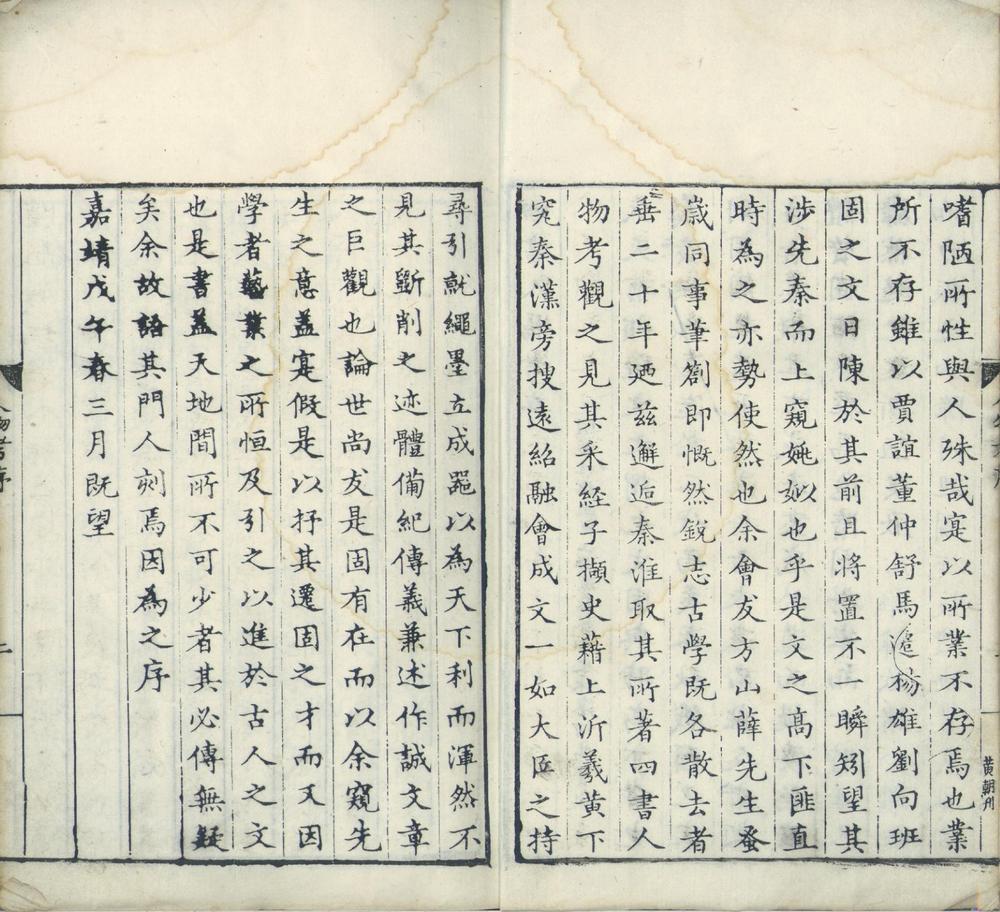 嗜陋所性與人殊哉寔以所業不存焉也業
所不存雖以賈誼董仲舒馬遷楊雄劉向班
固之文日陳於其前且將置不一瞬矧望其
涉先秦而上窺姚姒也乎是文之高下匪直
時為之亦勢使然也余會友方山薛先生蚤
歲同事筆劄即慨然銳志古學既各散去者
垂二十年廼兹邂逅秦淮取其所著四書人
物考觀之見其采経子擷史藉上泝羲黄下
究秦漢旁搜遠紹融會成文一如大匠之持
尋引就繩墨立成噐以為天下利而渾然不
見其斵削之迹體備紀傳義兼述作誠文章
之巨觀也論世尚友是固有在而以余窺先
生之意葢寔假是以抒其遷固之才而又因
學者藝業之所恒及引之以進於古人之文
也是書葢天地間所不可少者其必傳無疑
矣余故語其門人刻焉因為之序
嘉靖戊午春三月既望
黄朝刋
人物考序
二